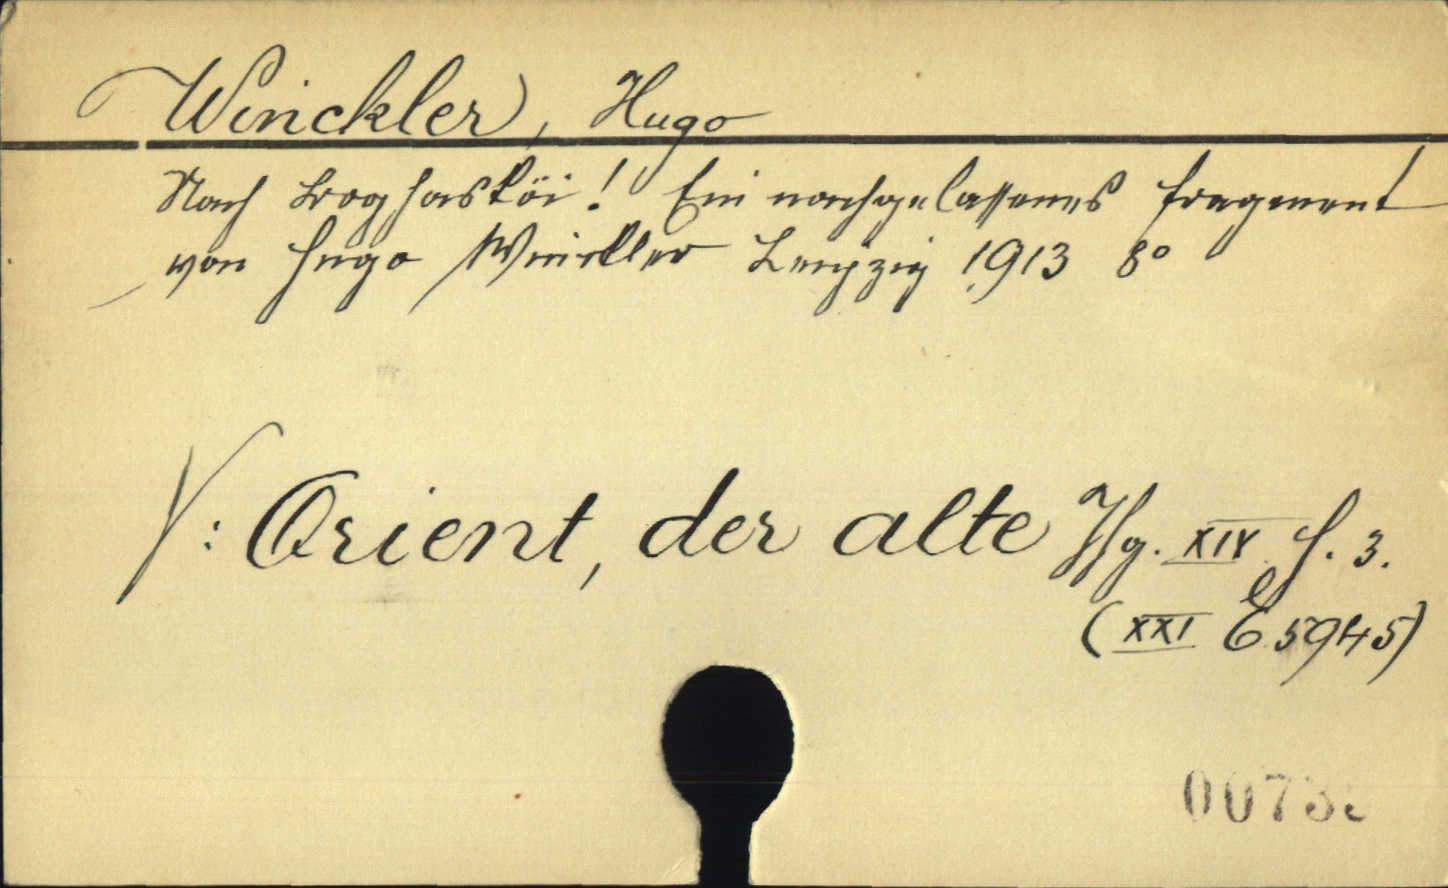 Winckler, Hugo
Nach Boghasköi! Ein nachgelassenes Fragment
von Hugo Winckler Leipzig 1913 8°
V: Orient, der alte Jhg. XIV H. 3.
(XXI E 5945)